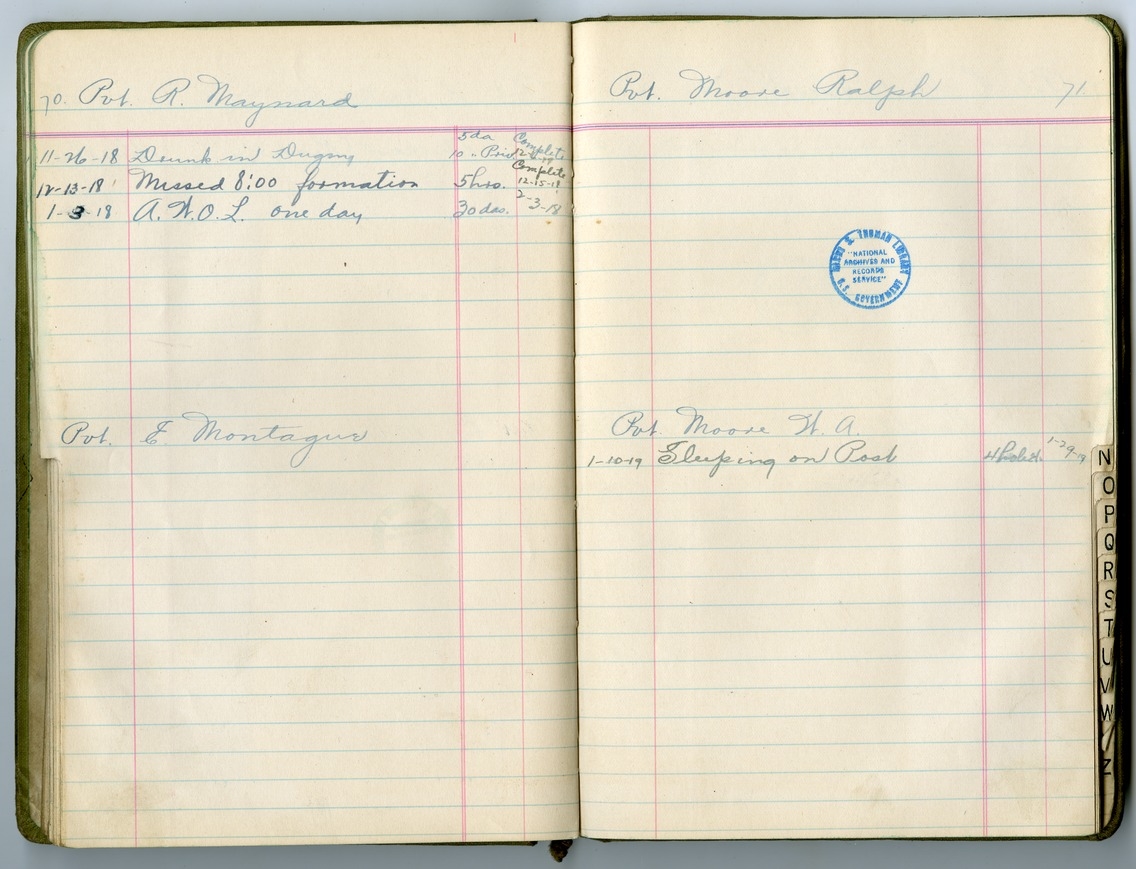 70. Pvt. R. Maynard
5da Complete
11-26-18 Drunk in Dugny 10 " Priv. 12-4-19
Complete
12-13-18 Missed 8:00 formation 5 hrs. 12-15-18
1-3-18 A.W.O.L. one day 30 das. 2-3-18
Pvt. E Montague
Pvt. Moore Ralph 71.
HARRY S. TRUMAN LIBRARY
"NATIONAL
ARCHIVES AND
RECORDS
SERVICE"
U.S. GOVERNMENT
Pvt. Moore W. A.
1-10-19 Sleeping on Post 1-29-19
N
O
P
Q
R
S
T
U
V
W
Z